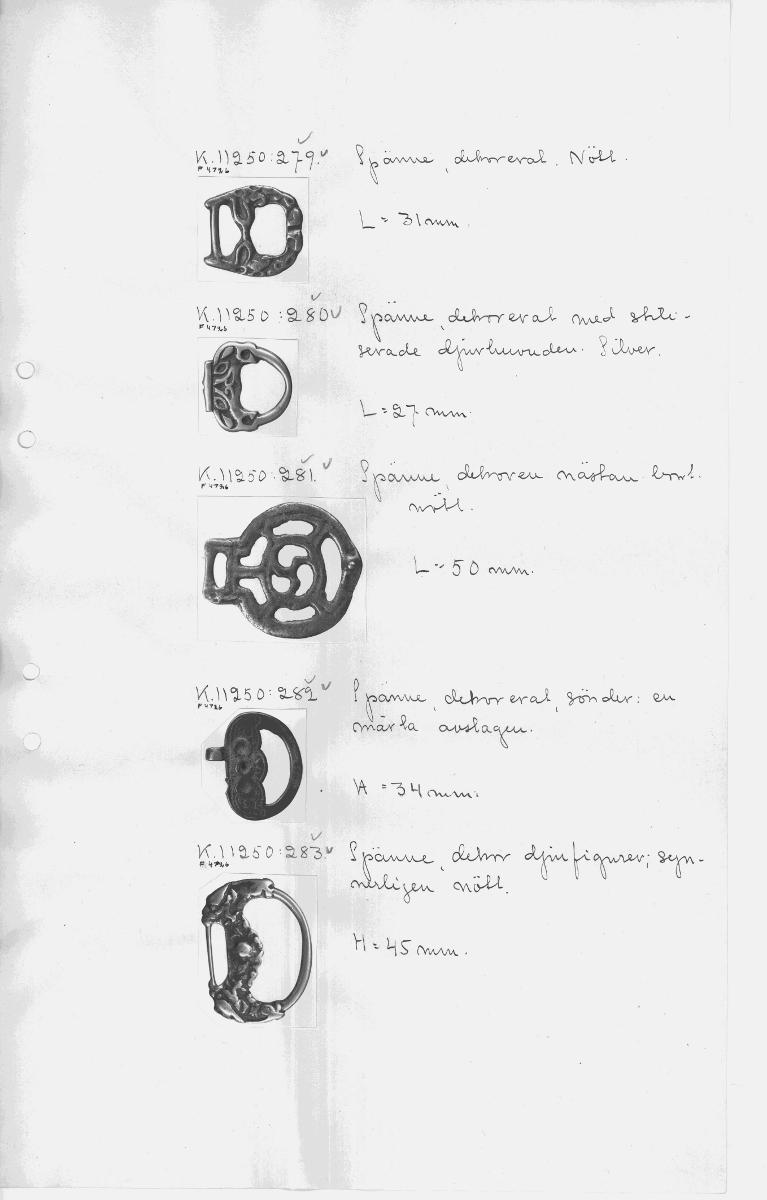 K.11250:279. Spänne, dekorerat. Nött.
F 4726
L = 31 mm.
K.11250:280 Spänne, dekorerat med stili-
F 4726
serade djurhuvuden. Silver.
L = 27 mm.
K.11250:281. Spänne, dekoren nästan bort-
F 4726
nött.
L = 50 mm.
K.11250:282 Spänne, dekorerat, sönder: en
F 4726
märla avslagen.
H = 34 mm.
K.11250:283. Spänne, dekor djurfigurer; syn-
F 4726
nerligen nött.
H = 45 mm.